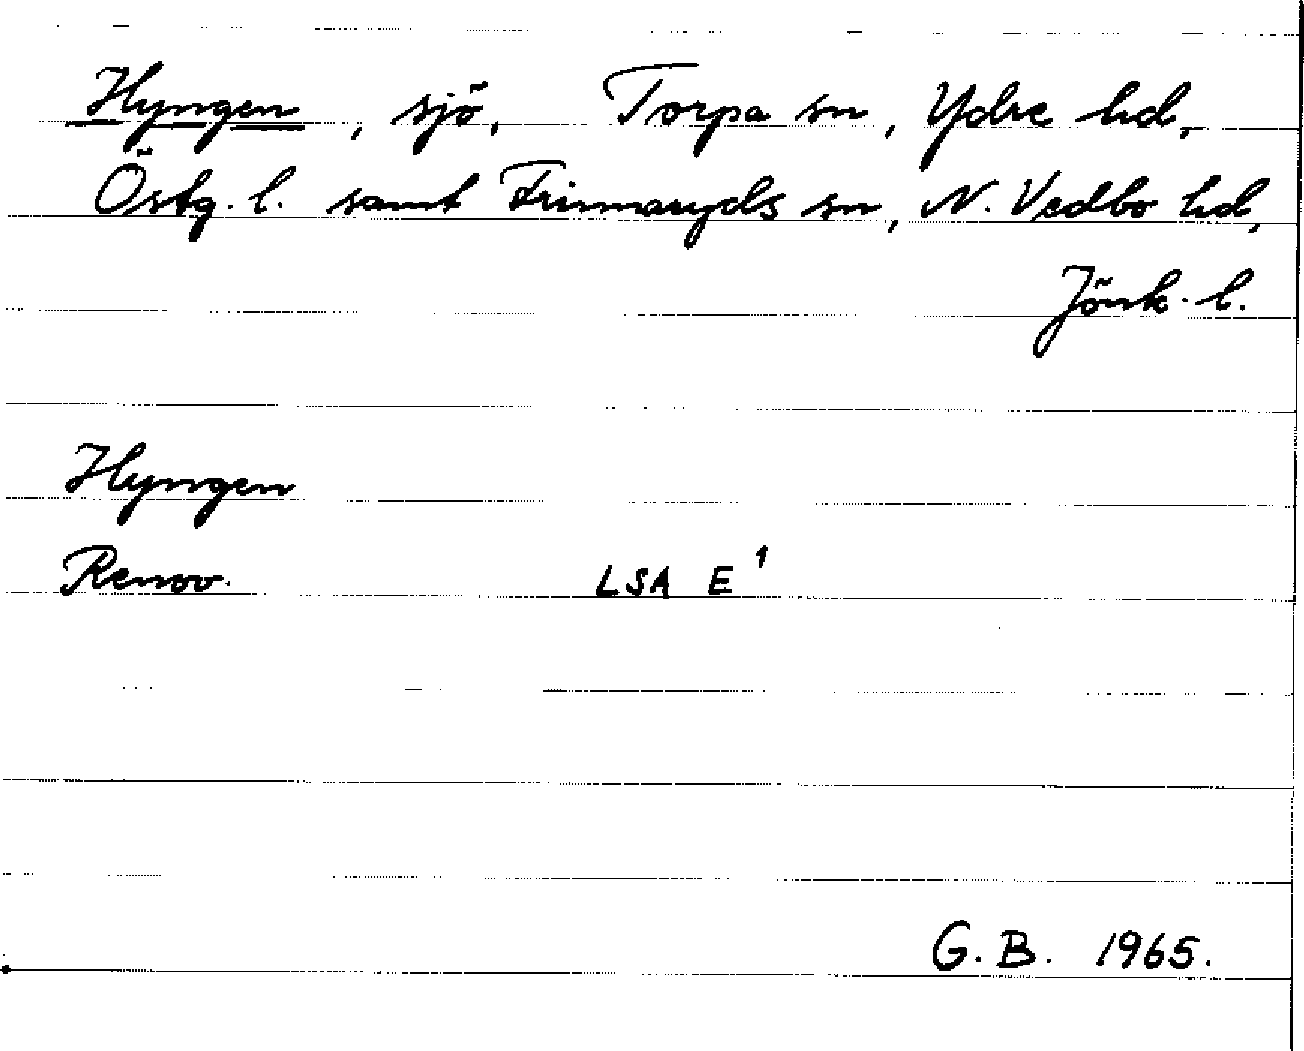 Hyngen, sjö, Torpa sn, Ydre hd,
Östg. l. samt Frinnaryds sn, N. Vedbo hd,
Jönk. l.
Hyngen
Renov. LSA E 1
G. B. 1965.